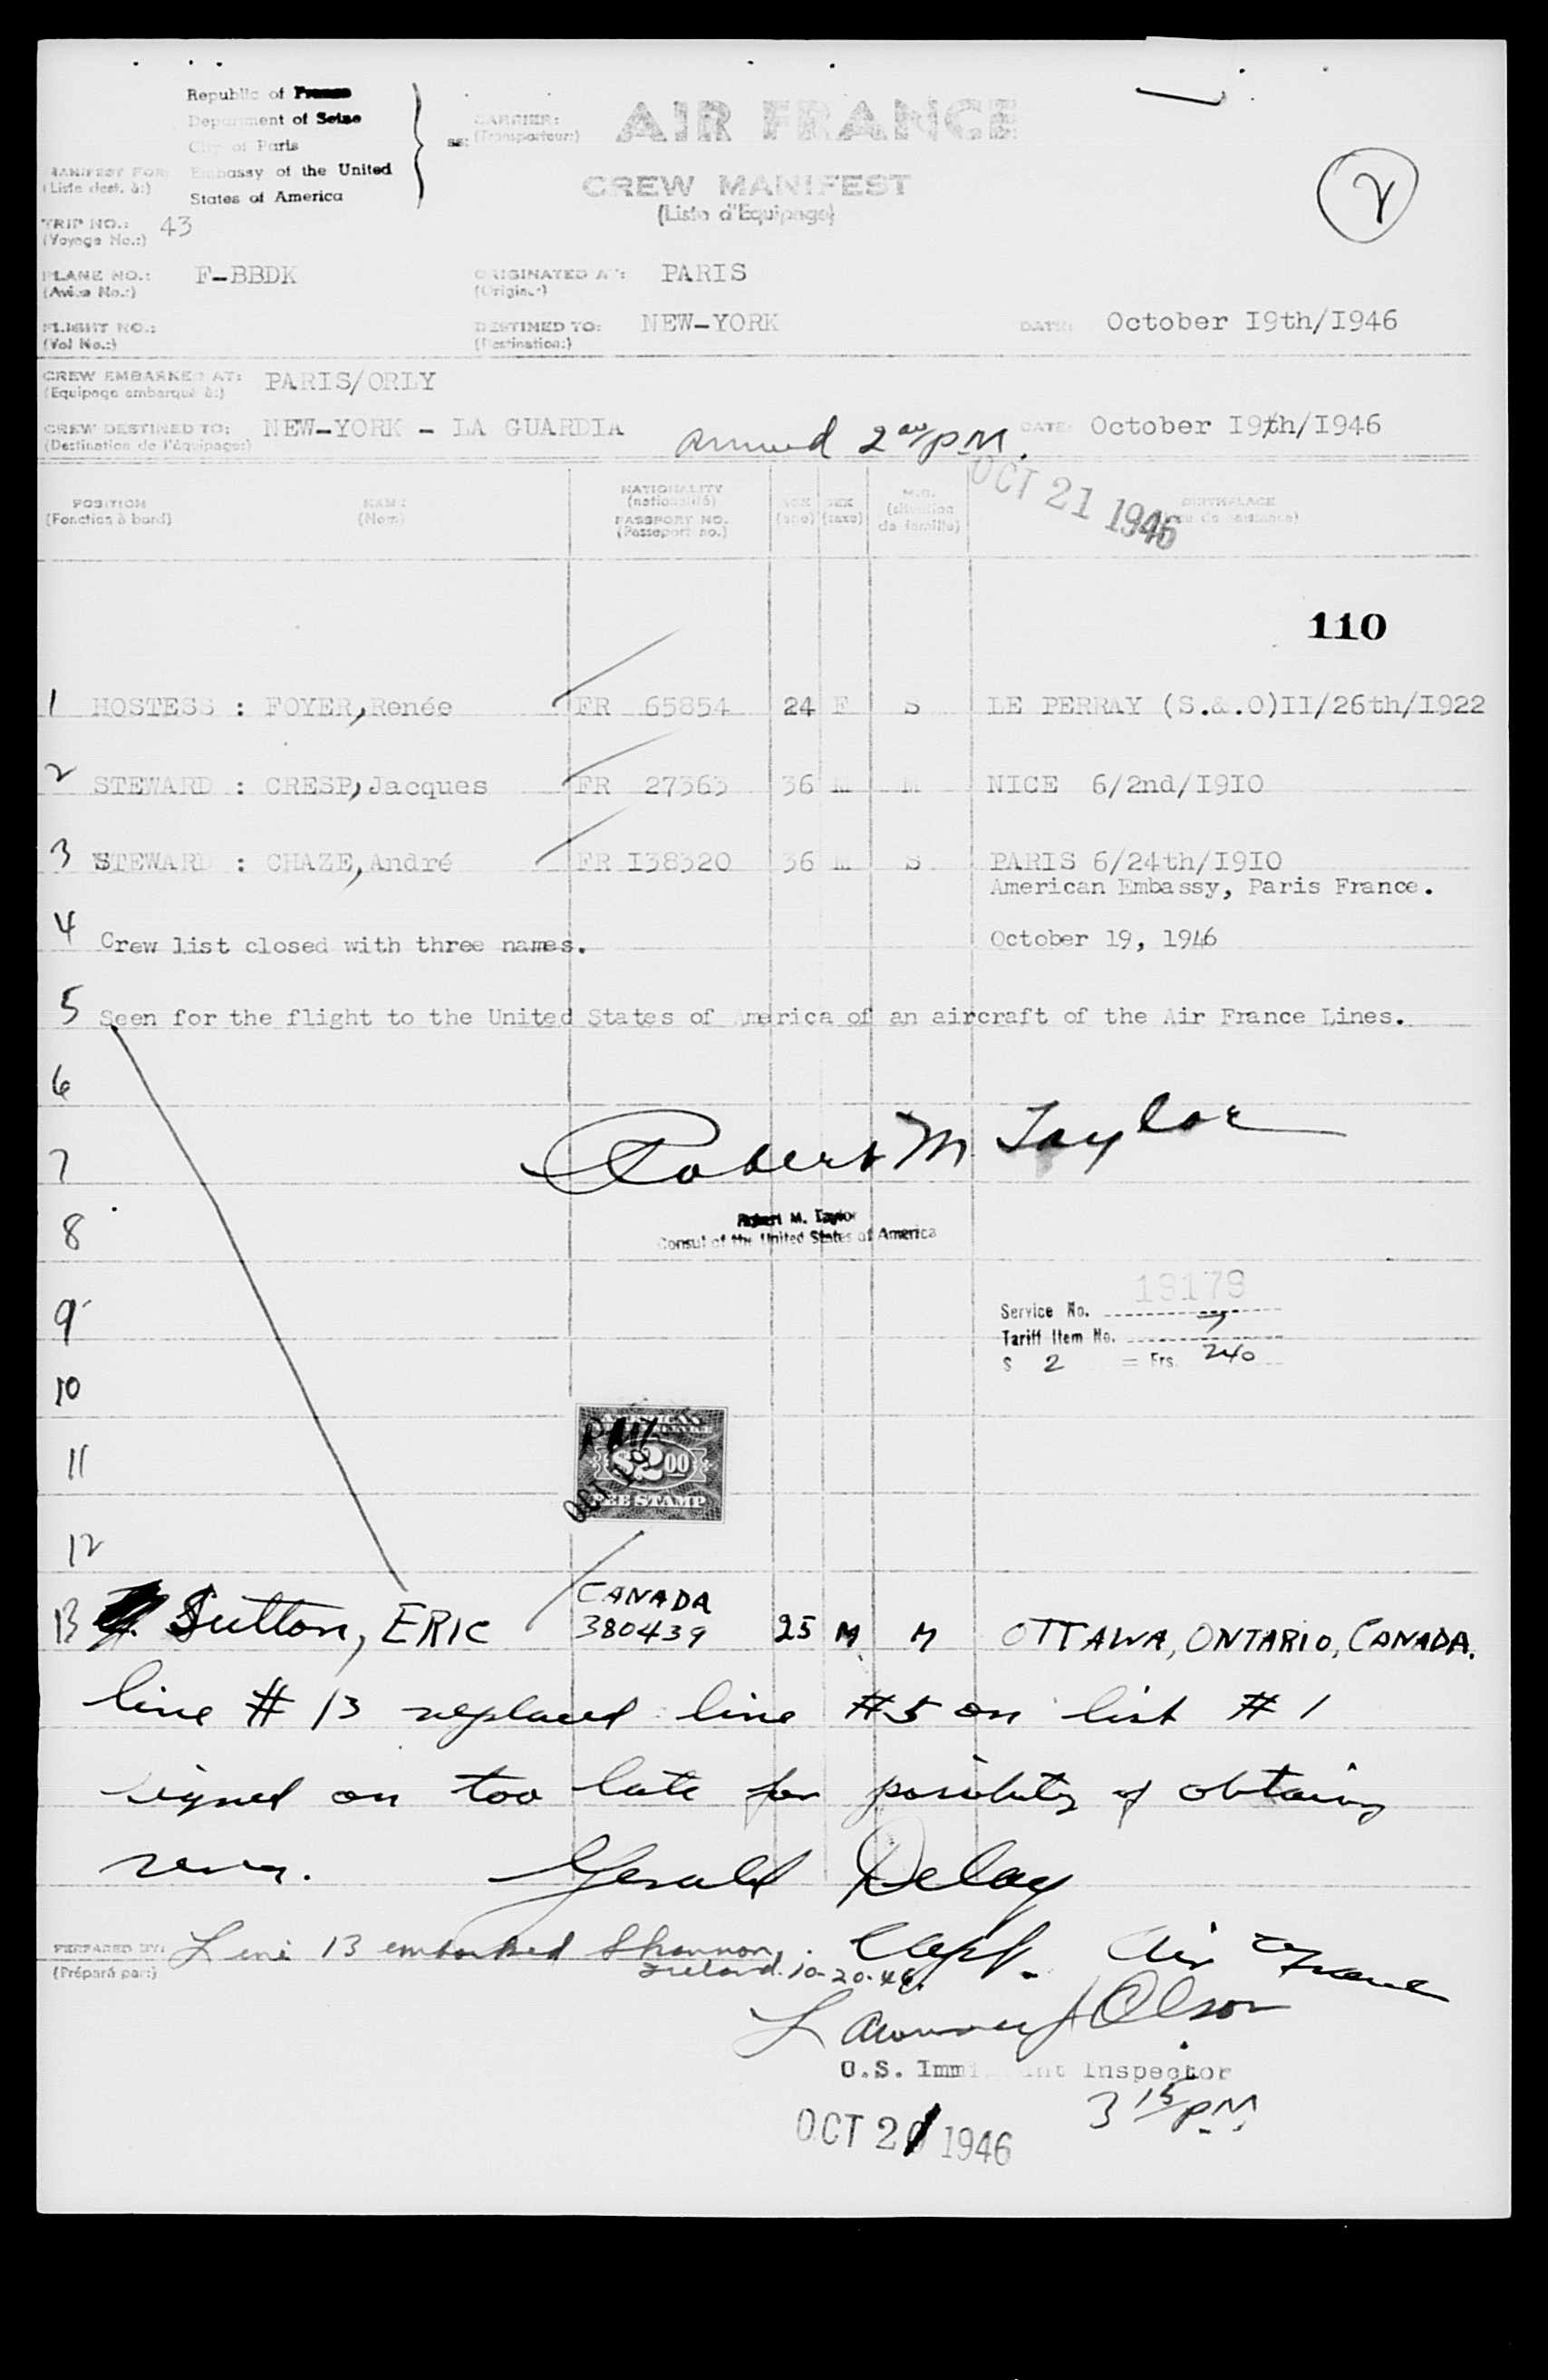 Republic of France
Department of Seine
City of Paris
Embassy of the United
States of America
ss:
CARRIER:
(Transporteur:)
AIR FRANCE
MANIFEST FOR:
(Liste dest. à:)
CREW MANIFEST
(Liste d'Equipage)
2
TRIP NO.: 43
(Voyage No.:)
PLANE NO.: F-BBDK
(Avion No.:)
ORIGINATED AT: PARIS
(Origine:)
FLIGHT NO.:
(Vol No.:)
DESTINED TO: NEW-YORK
(Destination:)
DATE: October I9th/I946
CREW EMBARKED AT: PARIS/ORLY
(Equipage embarqué à:)
CREW DESTINED TO: NEW-YORK - LA GUARDIA
(Destination de l'équipage:)
arrived 2 PM.
DATE: October I9th/I946
OCT 21 1946
POSITION
(Fonction à bord)
NAME
(Nom)
NATIONALITY
(nationalité)
PASSPORT NO.
(Passeport no.)
AGE
(age)
SEX
(sexe)
M.S.
(situation
de famille)
BIRTHPLACE
(Lieu de naissance)
110
1 HOSTESS : FOYER, Renée FR 65854 24 F S LE PERRAY (S.&.O)II/26th/I922
2 STEWARD : CRESP, Jacques FR 27363 36 M M NICE 6/2nd/I9I0
3 STEWARD : CHAZE, André FR I38320 36 M S PARIS 6/24th/I9I0
American Embassy, Paris France.
4 Crew list closed with three names. October 19, 1946
5 Seen for the flight to the United States of America of an aircraft of the Air France Lines.
6
7 Robert M Taylor
8 Robert M. Taylor
Consul of the United States of America
9 Service No. 18178
Tariff Item No. 7
$ 2 = Frs. 240
10
AMERICAN
$2.00
FEE STAMP
11
12
13 Sutton, ERIC CANADA
380439 25 M M OTTAWA, ONTARIO, CANADA.
line # 13 replaced line #5 on list # 1
signed on too late for possibility of obtaining
Gerald Delay
PREPARED BY: Line 13 embarked Shannon,
(Préparé par:) Ireland. 10-20-46.
Capt. Air France
Lawrence J Olson
U.S. Immigrant Inspector
3 15 PM
OCT 21 1946